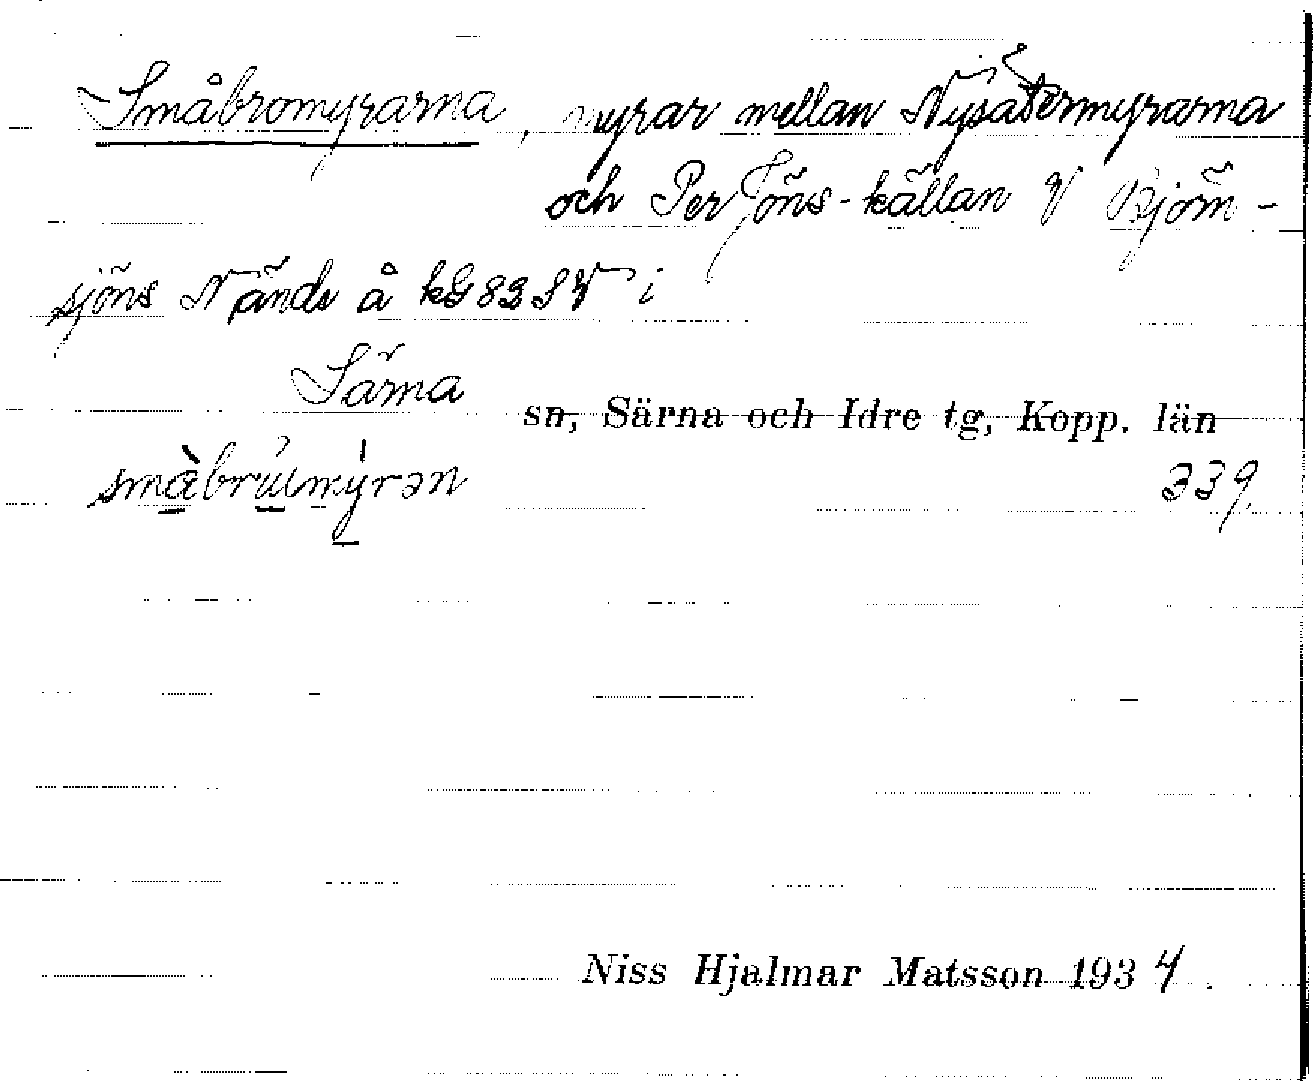 Småbromyrarna, myrar mellan Nysätermyrarna
och Per Jöns-källan V Björn-
sjöns N ände å kG 83 SV i
Särna sn, Särna och Idre tg, Kopp. län
småbrumyrən 339.
Niss Hjalmar Matsson 1934.